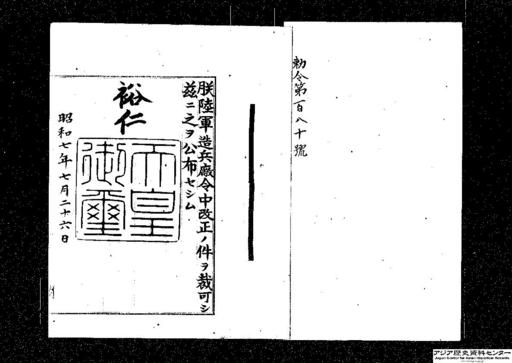 勅令第百八十號
朕陸軍造兵廠令中改正ノ件ヲ裁可シ
茲ニ之ヲ公布セシム
裕仁
天皇
御璽
昭和七年七月二十六日
アジア歴史資料センター
Japan Center for Asian Historical Records